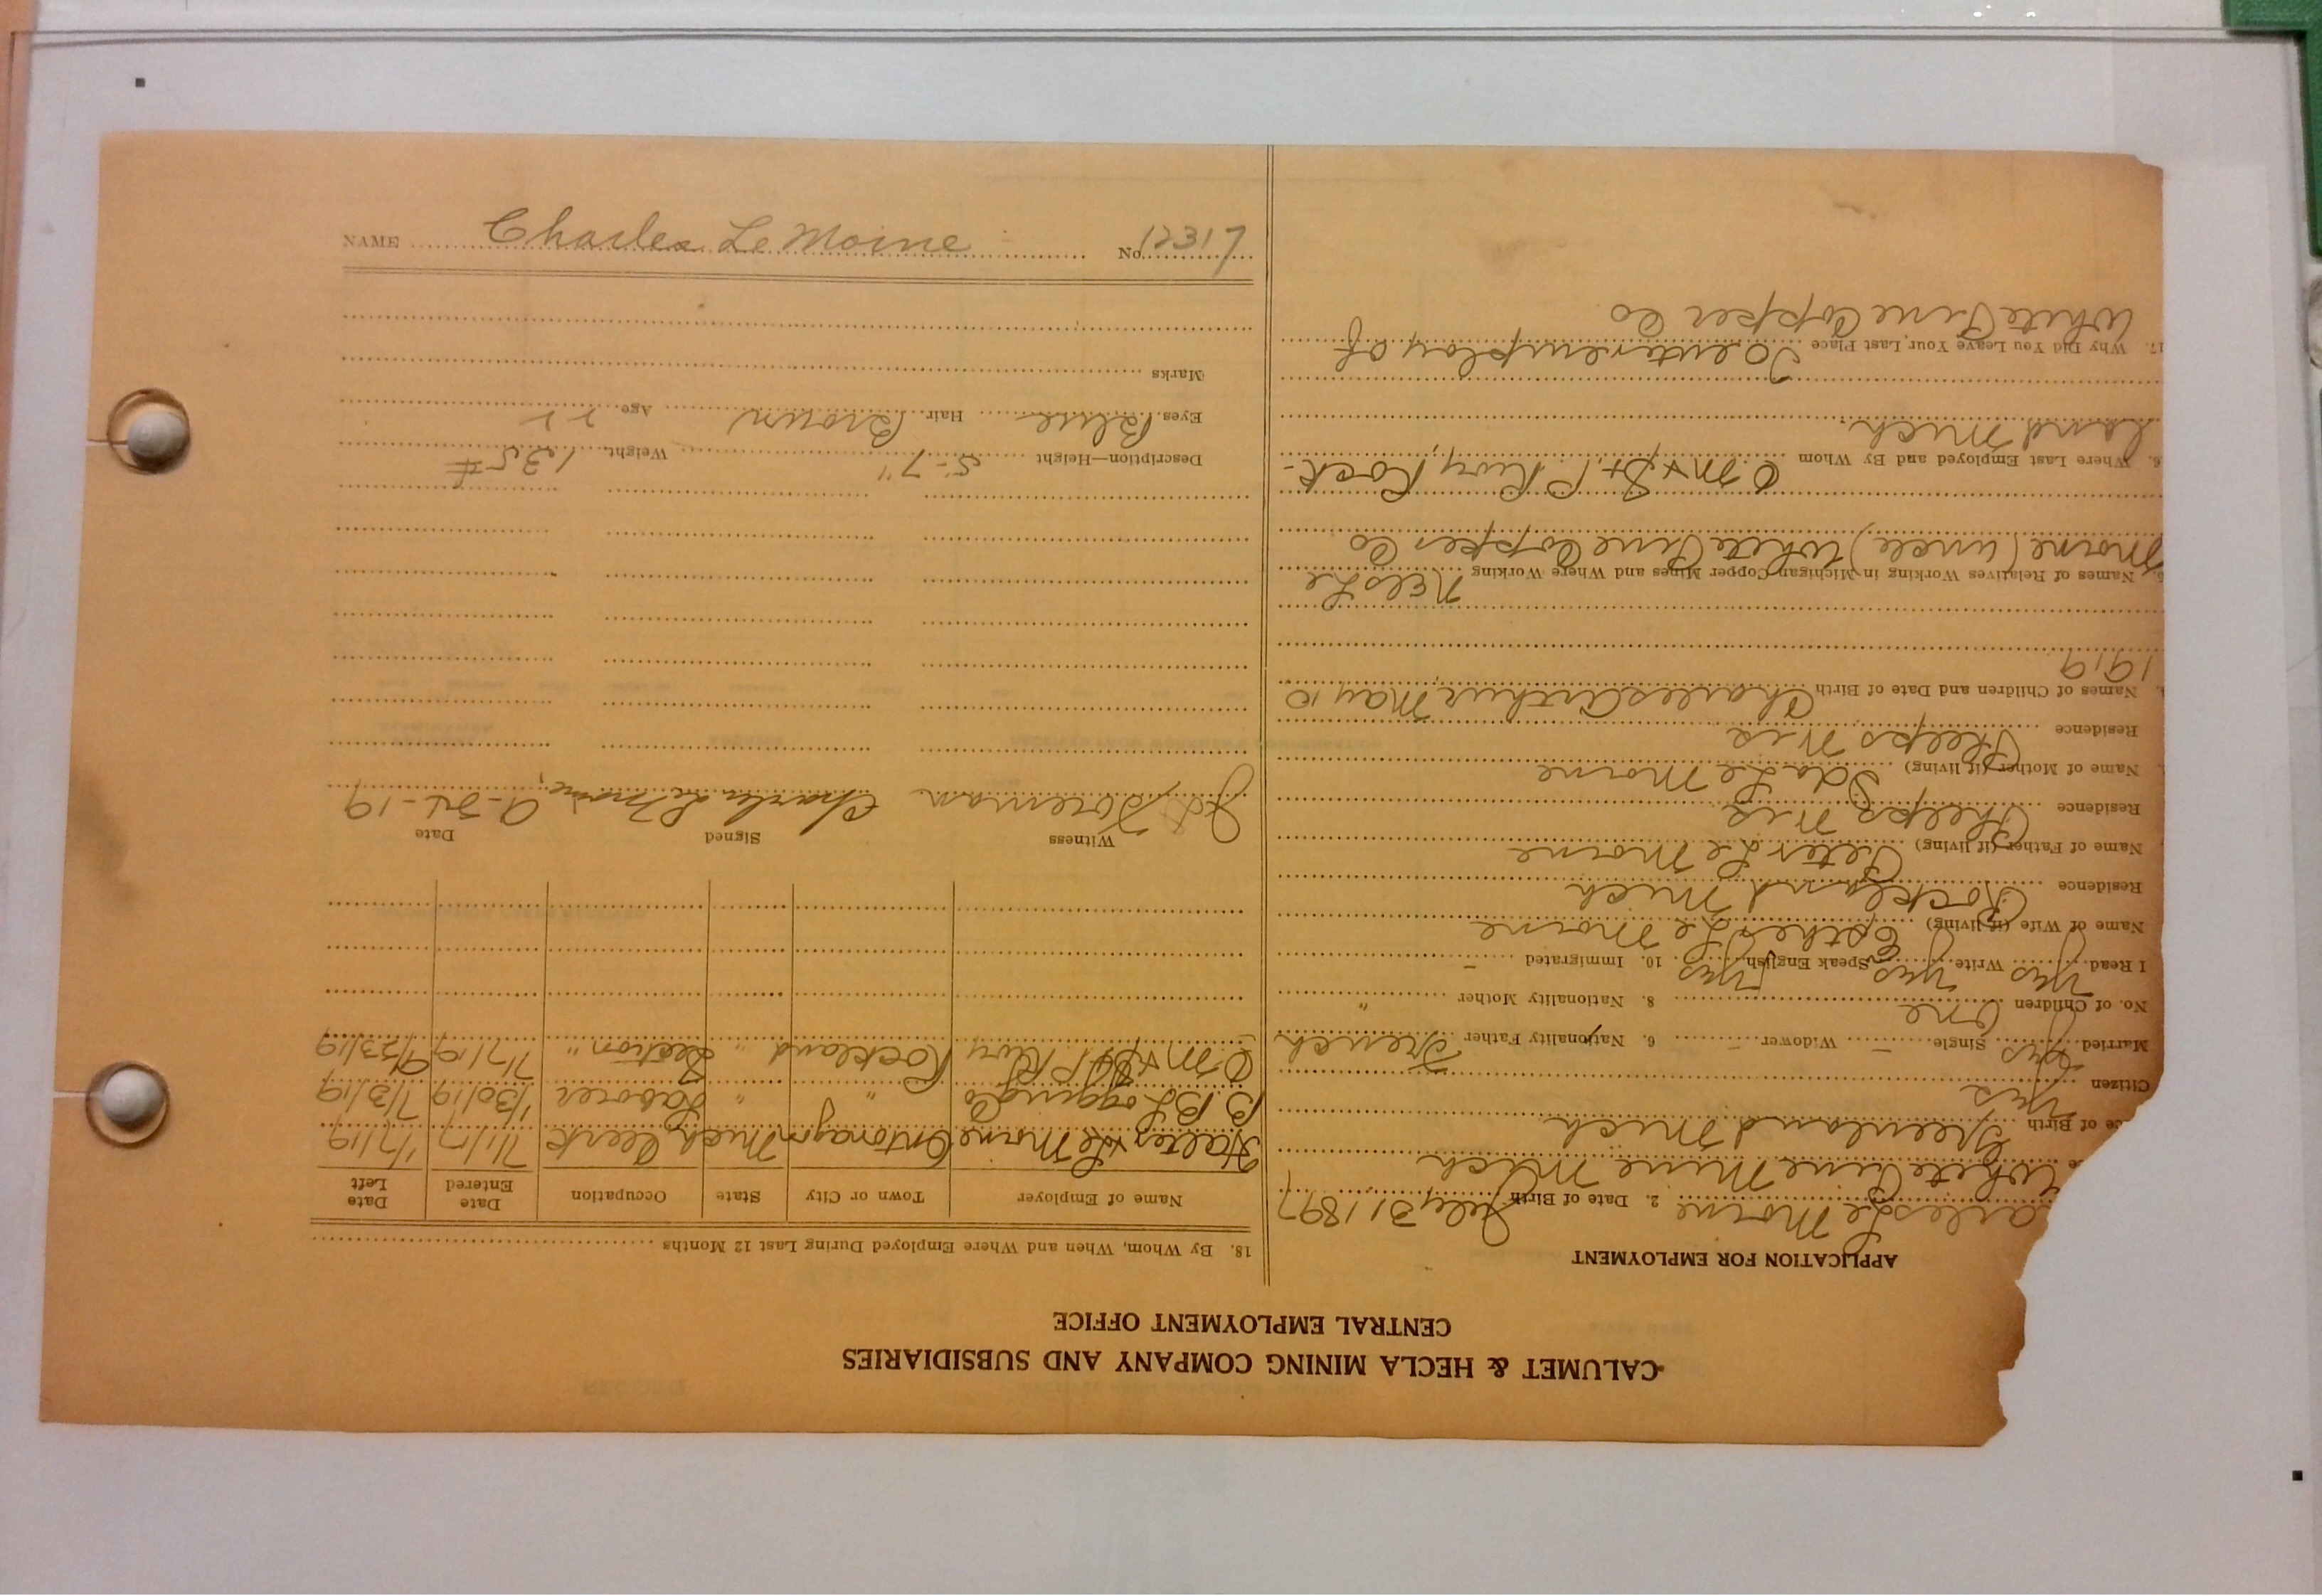 CALUMET & HECLA MINING COMPANY AND SUBSIDIARIES
CENTRAL EMPLOYMENT OFFICE
APPLICATION FOR EMPLOYMENT
arles Le Moine 2. Date of Birth July 31 1897
White Pine Mine Mich
e of Birth Greenland Mich
Citizen yes
Married yes Single – Widower – 6. Nationality Father French
No. of Children One 8. Nationality Mother "
I Read yes Write yes Speak English yes 10. Immigrated –
Name of Wife (if living) Esther Le Moine
Residence Rockland Mich
Name of Father (if living) Peter Le Moine
Residence Phelps Wis
Name of Mother (if living) Ida Le Moine
Residence Phelps Wis
Names of Children and Date of Birth Charles Arthur May 10
1919
Names of Relatives Working in Michigan Copper Mines and Where Working Nels Le
Moine (uncle) White Pine Copper Co
6. Where Last Employed and By Whom C M & St P Rwy, Rock-
land Mich.
17. Why Did You Leave Your Last Place To enter employ of
White Pine Copper Co
18. By Whom, When and Where Employed During Last 12 Months
Name of Employer Town or City State Occupation Date Entered Date Left
& Le Moine Ontonagon Mich Clerk 7/1/17 1/7/19
B. B Logging Co " " Laborer 1/30/19 7/3/19
C M & St P Rwy Rockland " Section " 7/7/19 9/23/19
Witness Signed Date
Foreman Charles Le Moine, 9-24-19
Description—Height 5-7" Weight 135 #
Eyes Blue Hair Brown Age 22
Marks
NAME Charles Le Moine No. 12317